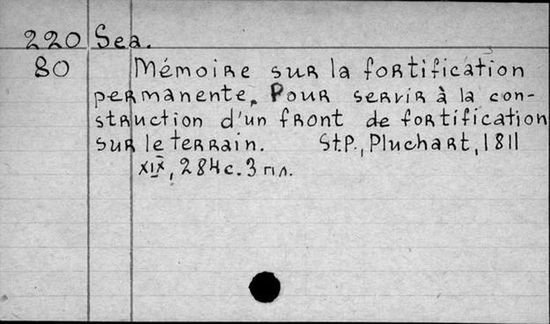 220 Sea.
80 Mémoire sur la fortification
permanente. Pour servir à la con-
struction d'un front de fortification
sur le terrain. St.P., Pluchart, 1811
XIX, 284 с. 3 пл.